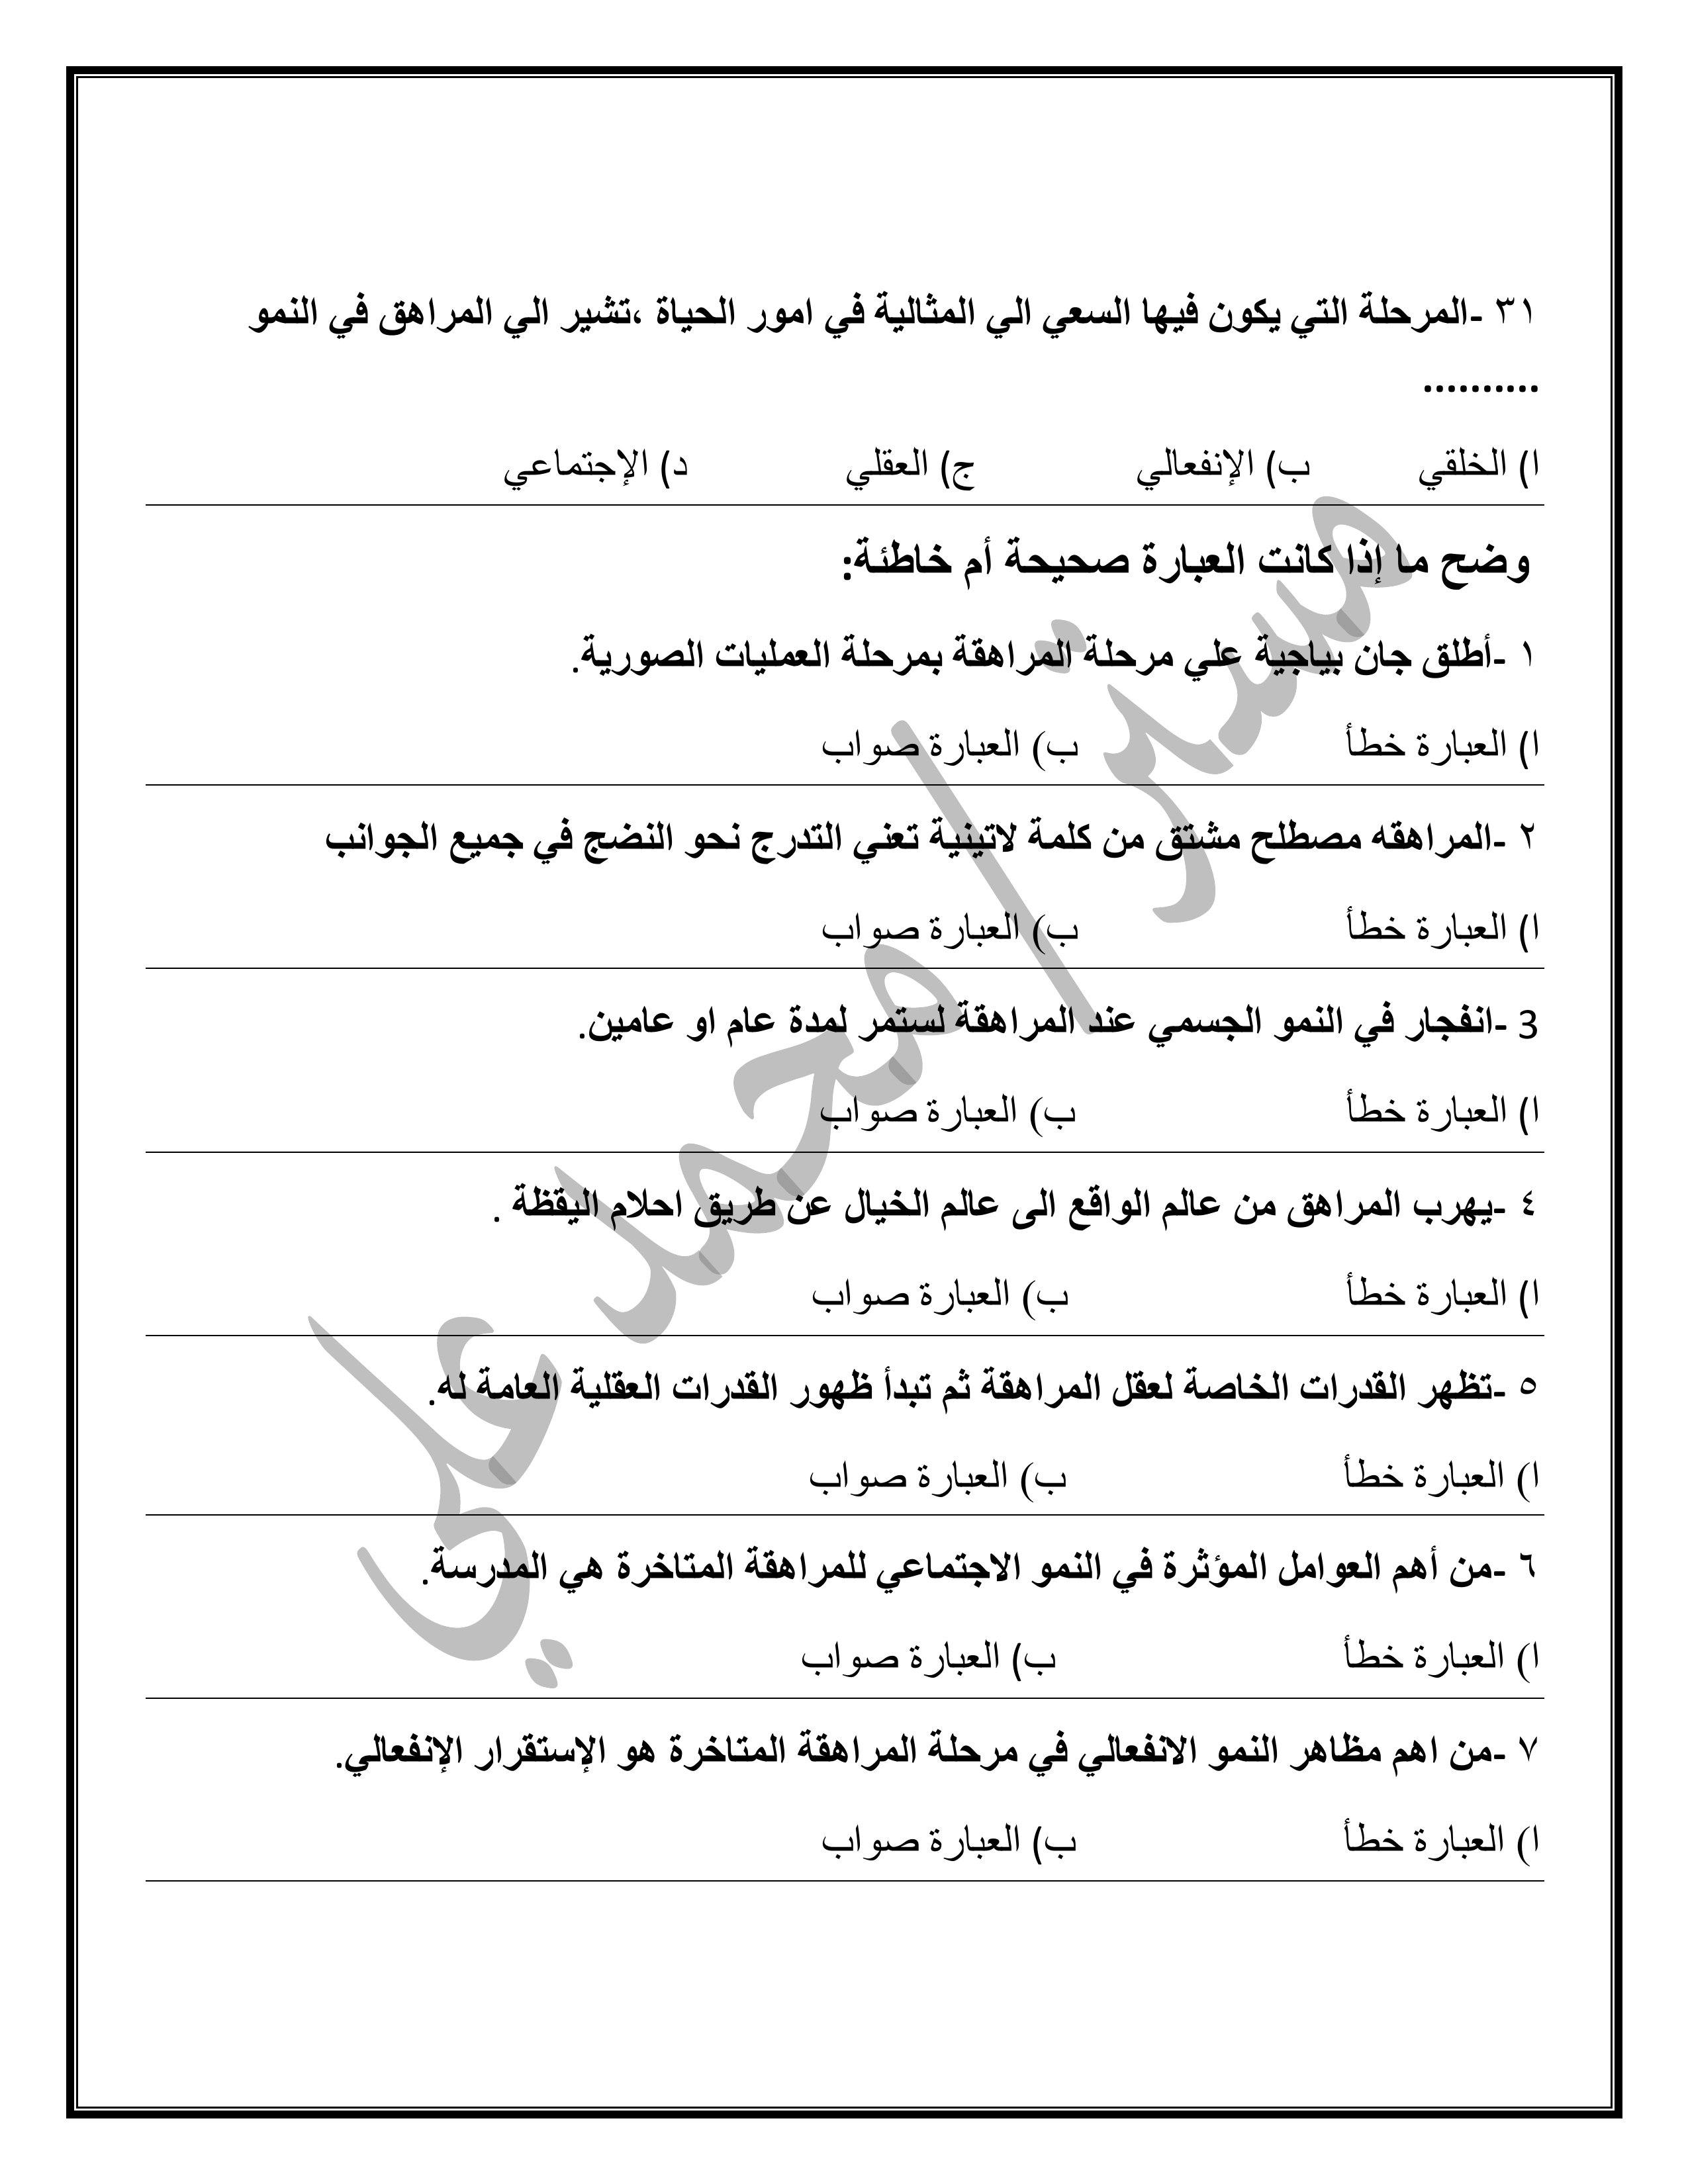 ٣١ -المرحلة التي يكون فيها السعي الي المثالية في امور الحياة ،تشير الي المراهق في النمو
..........
ا) الخلقي ب) الإنفعالي ج) العقلي د) الإجتماعي
وضح ما إذا كانت العبارة صحيحة أم خاطئة:
١ -أطلق جان بياجية علي مرحلة المراهقة بمرحلة العمليات الصورية.
ا) العبارة خطأ ب) العبارة صواب
٢ -المراهقه مصطلح مشتق من كلمة لاتينية تعني التدرج نحو النضج في جميع الجوانب
ا) العبارة خطأ ب) العبارة صواب
3 -انفجار في النمو الجسمي عند المراهقة لستمر لمدة عام او عامين.
ا) العبارة خطأ ب) العبارة صواب
٤ -يهرب المراهق من عالم الواقع الى عالم الخيال عن طريق احلام اليقظة .
ا) العبارة خطأ ب) العبارة صواب
٥ -تظهر القدرات الخاصة لعقل المراهقة ثم تبدأ ظهور القدرات العقلية العامة له.
ا) العبارة خطأ ب) العبارة صواب
٦ -من أهم العوامل المؤثرة في النمو الاجتماعي للمراهقة المتاخرة هي المدرسة.
ا) العبارة خطأ ب) العبارة صواب
٧ -من اهم مظاهر النمو الانفعالي في مرحلة المراهقة المتاخرة هو الإستقرار الإنفعالي.
ا) العبارة خطأ ب) العبارة صواب
مستر/محمد علي